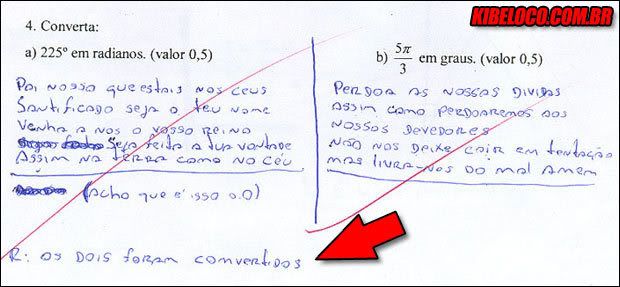 KIBELOCO.COM.BR
4. Converta:
a) 225º em radianos. (valor 0,5)
Pai nosso que estais nos ceus
Santificado seja o teu nome
Venha a nos o vosso reino
Seja feita a tua vontade
Assim na terra como no céu
(acho que é isso o.O)
b) 5π/3 em graus. (valor 0,5)
Perdoa as nossas dividas
Assim como perdoaremos aos
nossos devedores
não nos deixe cair em tentação
mas livra-nos do mal amem
R: os dois foram comvertidos